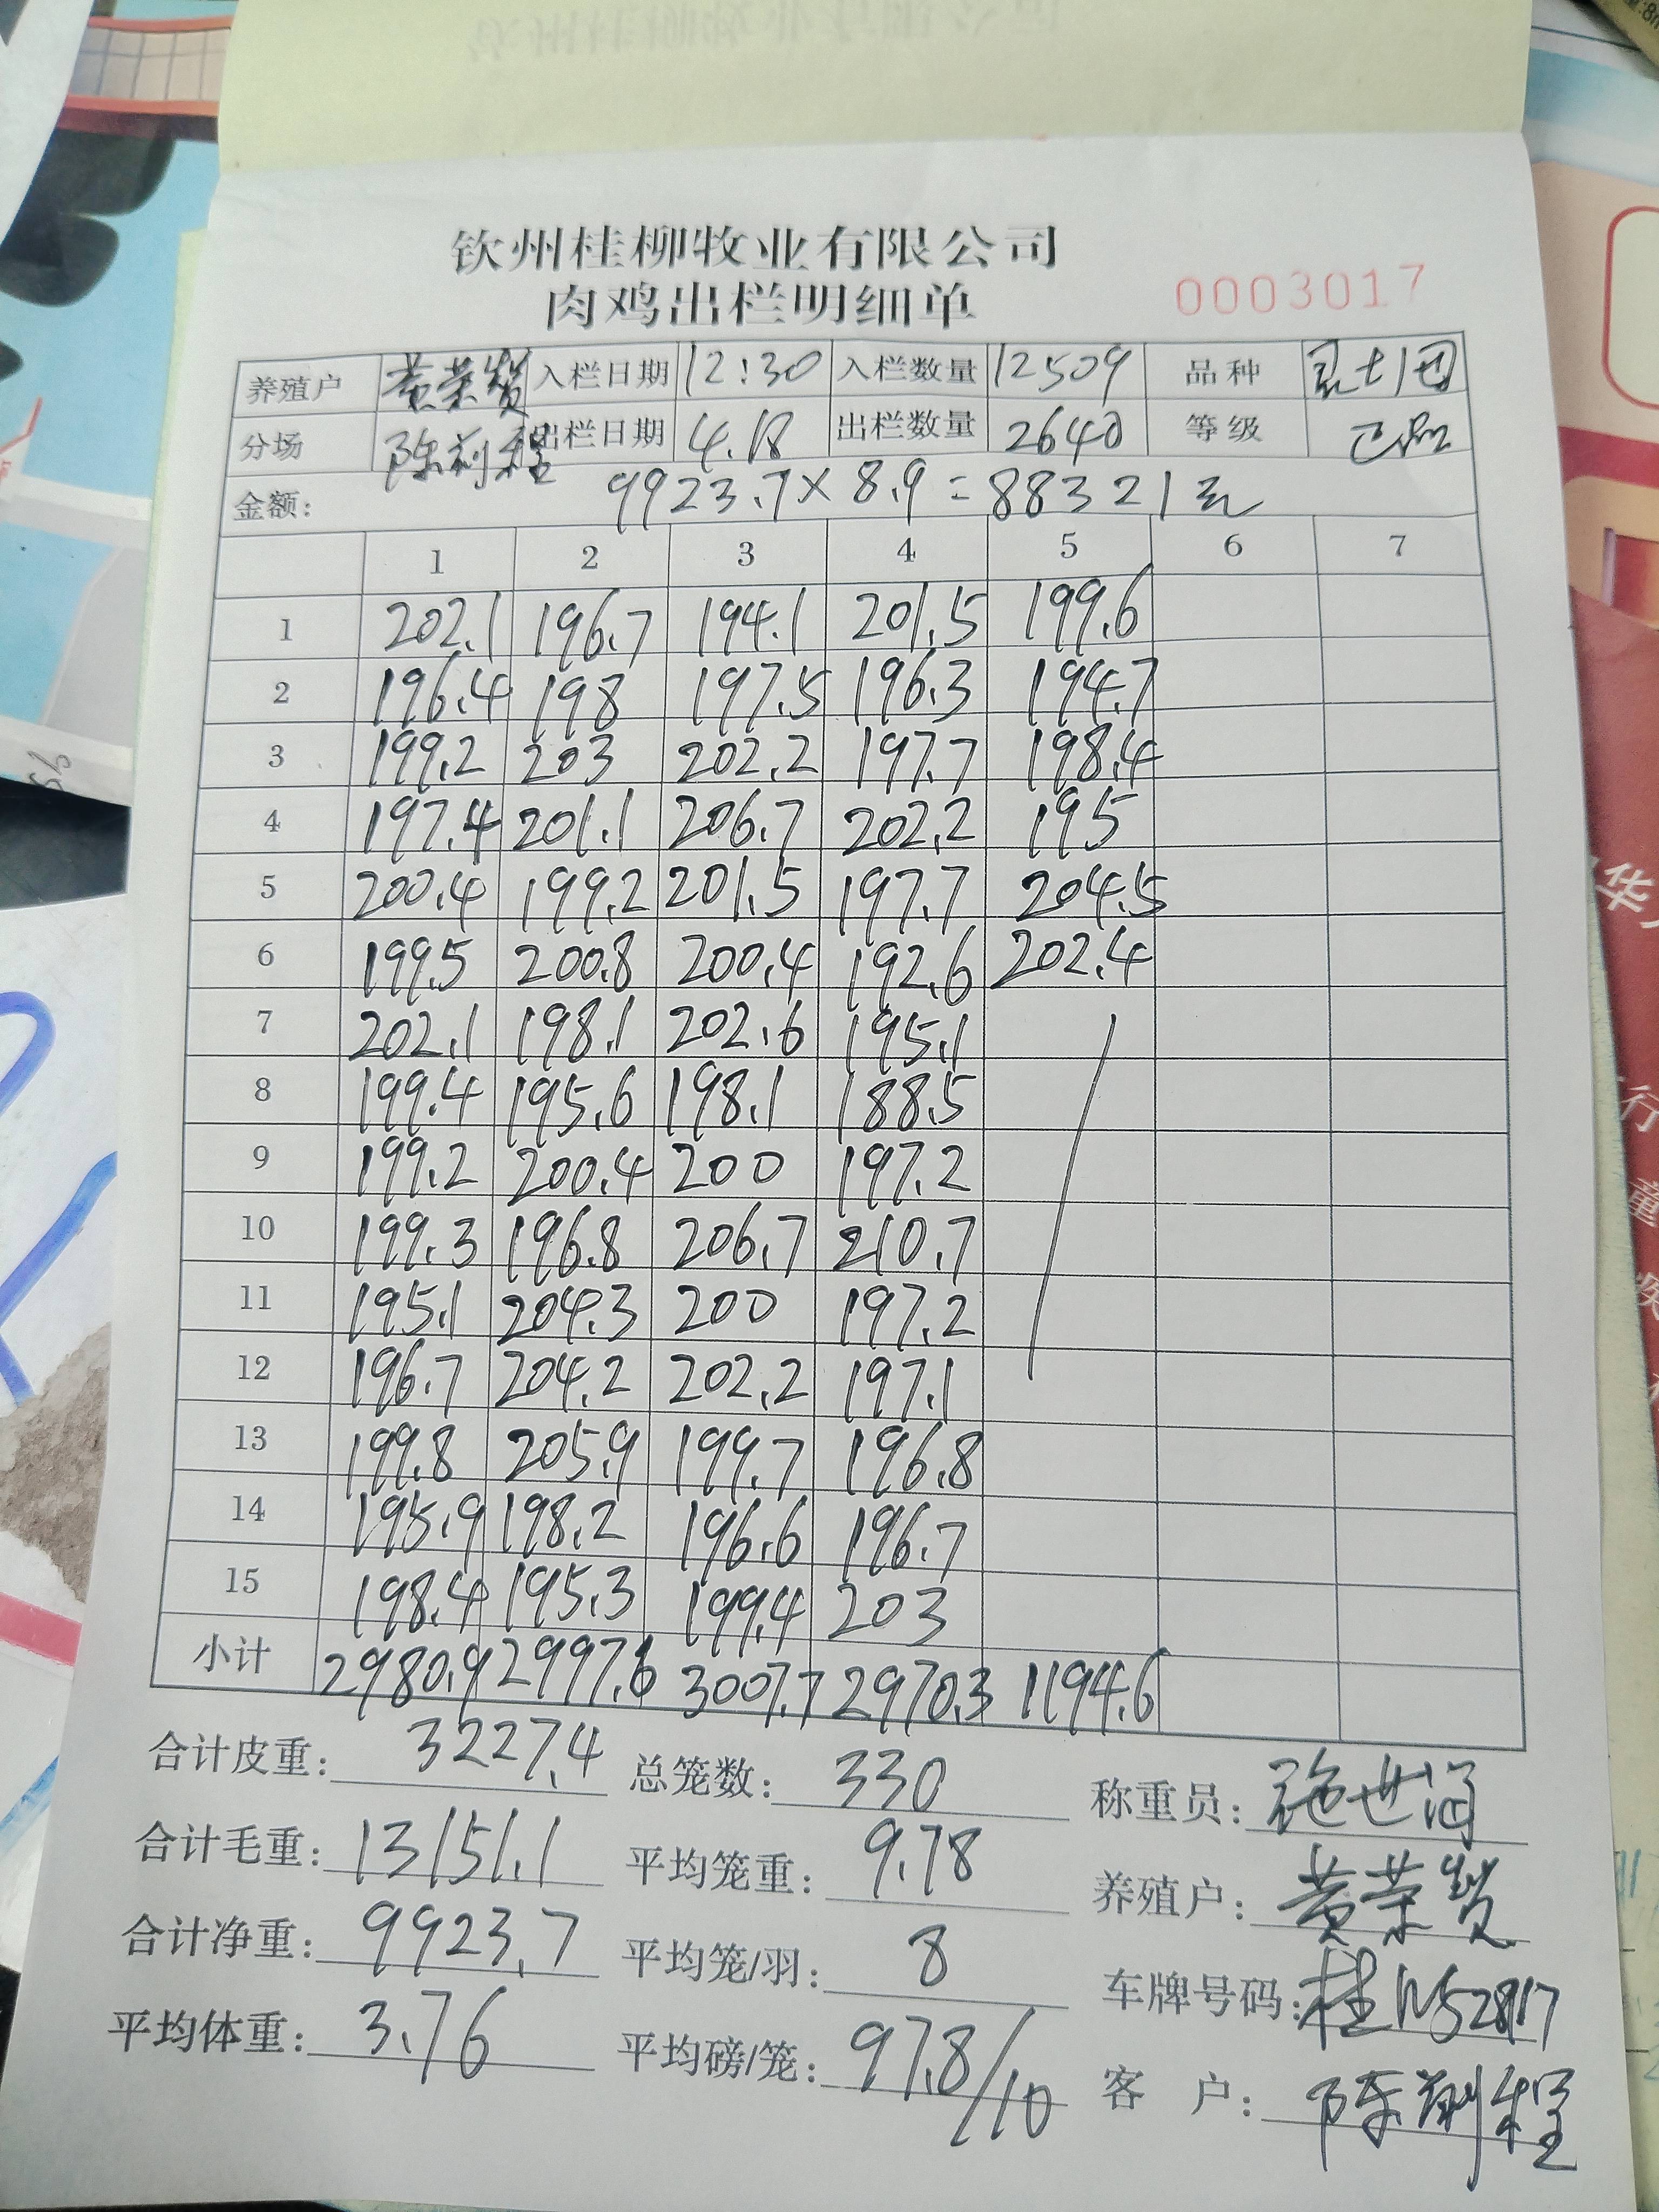 钦州桂柳牧业有限公司
肉鸡出栏明细单 0003017
养殖户 黄荣贤 入栏日期 12:30 入栏数量 12509 品种
分场 出栏日期 4.18 出栏数量 2640 等级
金额: 9923.7×8.9=88321元
1 2 3 4 5 6 7
1 202.1 196.7 194.1 201.5 199.6
2 196.4 198 197.5 196.3 194.7
3 199.2 203 202.2 197.7 198.4
4 197.4 201.1 206.7 202.2 195
5 200.4 199.2 201.5 197.7 204.5
6 199.5 200.8 200.4 192.6 202.4
7 202.1 198.1 202.6 195.1
8 199.4 195.6 198.1 188.5
9 199.2 200.4 200 197.2
10 199.3 196.8 206.7 210.7
11 195.1 204.3 200 197.2
12 196.7 204.2 202.2 197.1
13 199.8 205.9 199.7 196.8
14 195.9 198.2 196.6 196.7
15 198.4 195.3 199.4 203
小计 2980.9 2997.6 3007.7 2970.3 1194.6
合计皮重: 3227.4 总笼数: 330 称重员:
合计毛重: 13151.1 平均笼重: 9.78 养殖户: 黄荣贤
合计净重: 9923.7 平均笼/羽: 8 车牌号码: 桂N52817
平均体重: 3.76 平均磅/笼: 97.8/10 客 户:
华
行
童